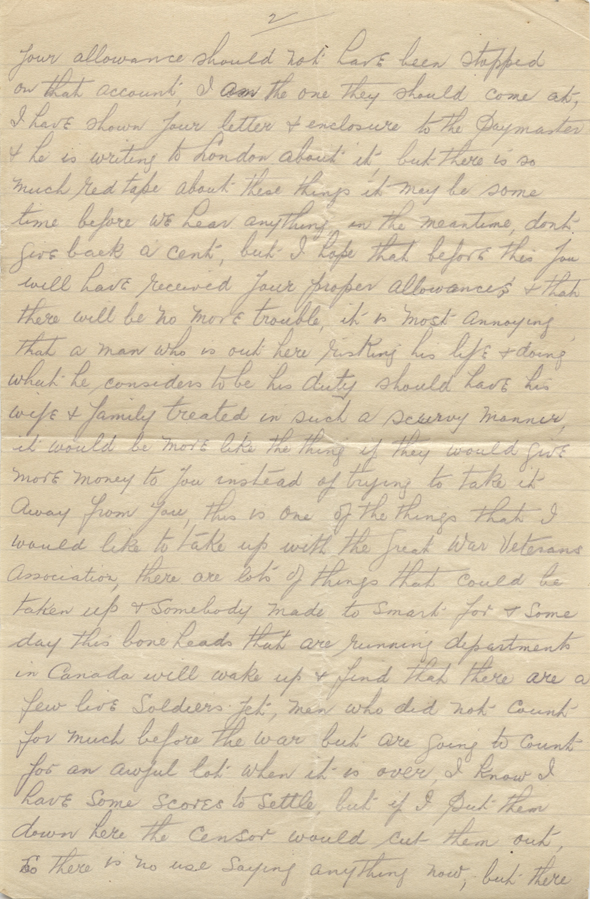 2
your allowance should not have been stopped
on that account, I am the one they should come at,
I have shown your letter & enclosure to the Paymaster
& he is writing to London about it but there is so
much red tape about these things it may be some
time before we hear anything, in the meantime, dont
give back a cent, but I hope that before this you
will have received your proper allowances & that
there will be no more trouble, it is most annoying
that a man who is out here risking his life & doing
what he considers to be his duty should have his
wife & family treated in such a scurvy manner,
it would be more like the thing if they would give
more money to you instead of trying to take it
away from you, this is one of the things that I
would like to take up with the Great War Veterans
Association, there are lots of things that could be
taken up & somebody made to smart for & some
day this bone heads that are running departments
in Canada will wake up & find that there are a
few live Soldiers yet, men who did not count
for much before the war but are going to count
for an awful lot when it is over, I know I
have some scores to settle but if I put them
down here the censor would cut them out,
so there is no use saying anything now, but there